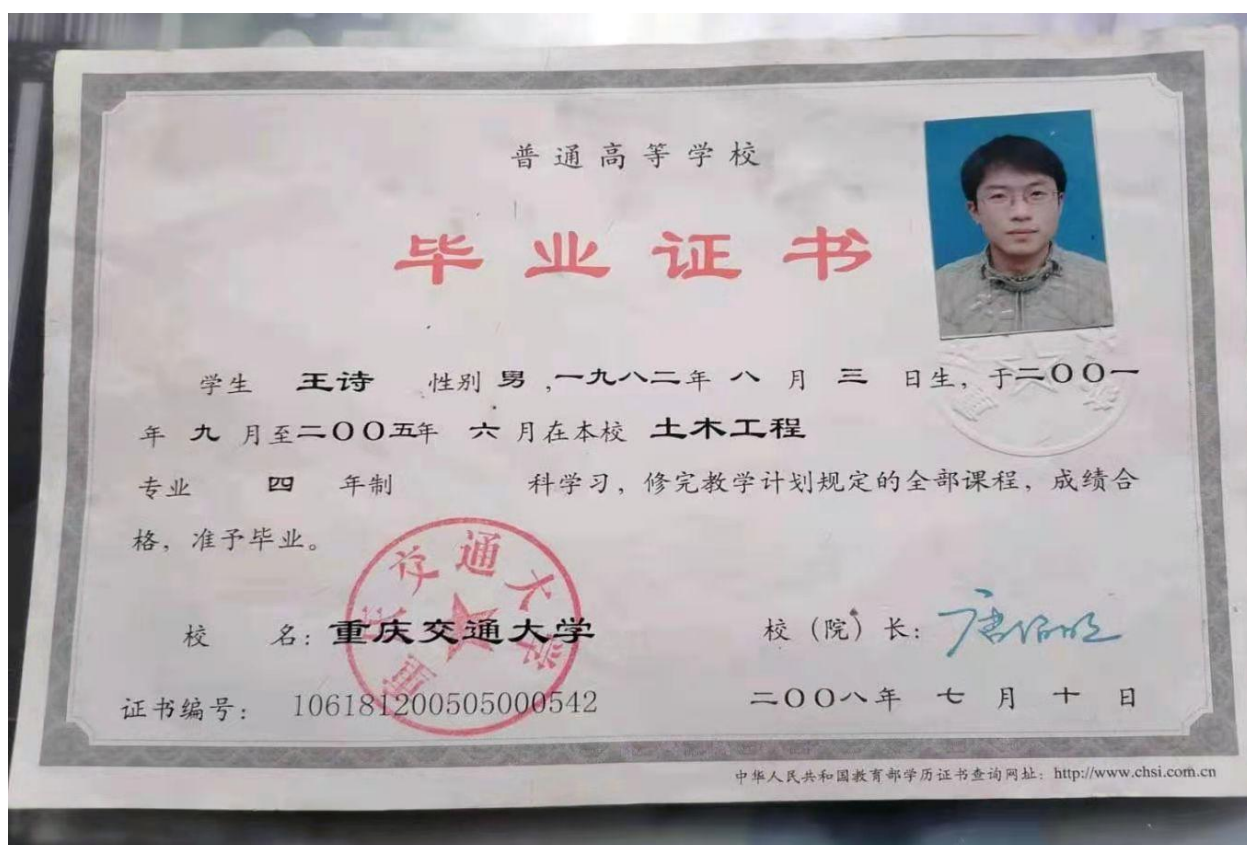 普通高等学校
毕业证书
学生 王诗 性别 男,一九八二年 八 月 三 日生,于二〇〇一
年 九 月至二〇〇五年 六 月在本校 土木工程
专业 四 年制 科学习,修完教学计划规定的全部课程,成绩合
格,准予毕业。
重庆交通大学
校 名:重庆交通大学
校(院)长:唐伯明
证书编号: 106181200505000542
二〇〇八年 七 月 十 日
中华人民共和国教育部学历证书查询网址:http://www.chsi.com.cn